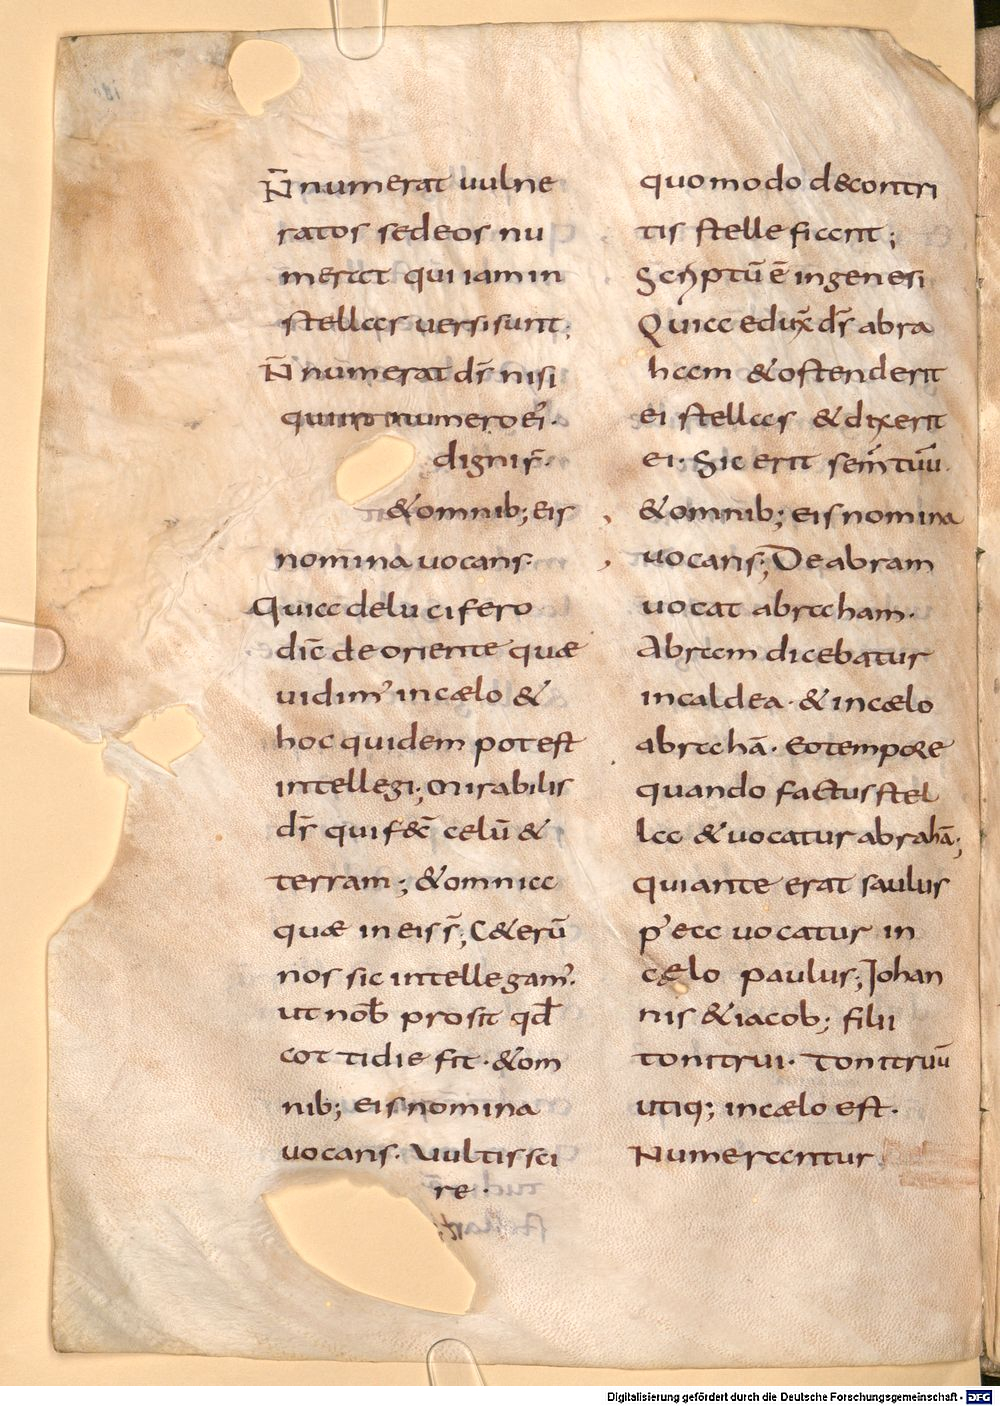 N̄ numerat uulne
ratos sed eos nu
merat qui iam in
stellas uersi sunt;
N̄ numerat dr̄ nisi
qui in numero ei᾽
digni s̄.
& omnib; eis
nomina uocans.
Quia de lucifero
dic̄ de oriente quae
uidim᾽ in caelo &
hoc quidem potest
intellegi; Mirabilis
dr̄ qui fec̄ celū &
terram; & omnia
quae in eis s̄; C&erū
nos sic intellegam᾽.
ut nob̄ prosit qd̄
cottidie fit. & om
nib; eis nomina
uocans. Uultis sci
re.
quomodo de contri
tis stelle fiant;
Scriptū ē in genesi
Quia edux̄ dr̄ abra
ham & ostenderit
ei stellas & dixerit
ei. Sic erit sem̄ tuū.
& omnib; eis nomina
uocans; De abram
uocat abraham.
Abram dicebatur
in caldea. & in caelo
abrahā. Eo tempore
quando factus stel
la & uocatur abrahā;
qui ante erat saulus
p᾽ ea uocatur in
caelo paulus; Iohan
nis & iacob; filii
tonitrui. Tonitruū
utiq; in caelo est.
Numerantur
Digitalisierung gefördert durch die Deutsche Forschungsgemeinschaft - DFG